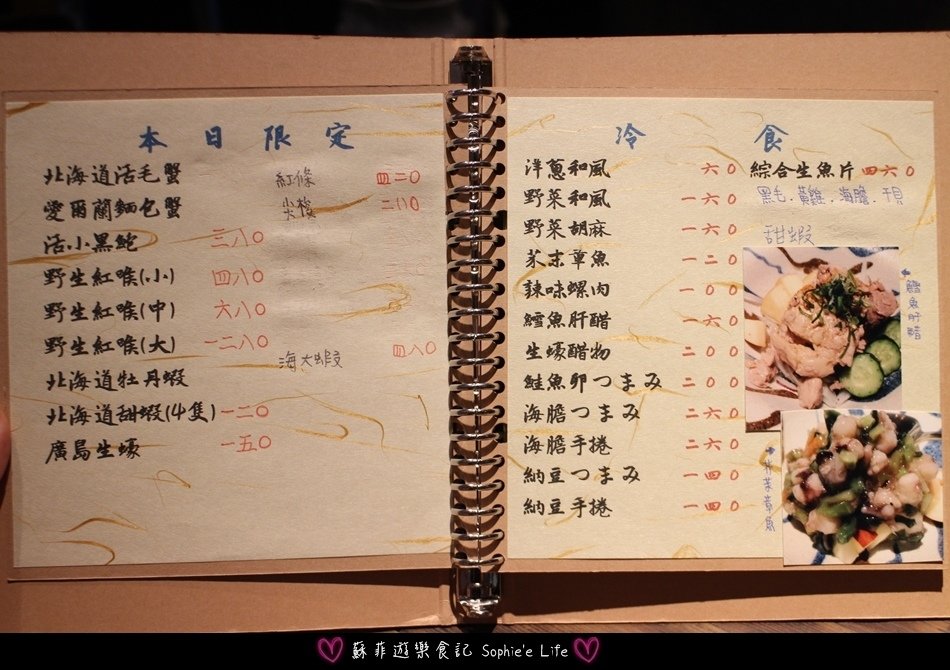 本日限定
北海道活毛蟹
紅條 四二〇
愛爾蘭麵包蟹
二八〇
活小黑鮑 三八〇
野生紅喉(小) 四八〇
野生紅喉(中) 六八〇
野生紅喉(大) 一二八〇
海大蝦 四八〇
北海道牡丹蝦
北海道甜蝦(4隻) 一二〇
廣島生蠔 一五〇
冷食
洋蔥和風 六〇
野菜和風 一六〇
野菜胡麻 一六〇
芥末章魚 一二〇
辣味螺肉 一〇〇
鱈魚肝醋 一六〇
生蠔醋物 二〇〇
鮭魚卵つまみ 二〇〇
海膽つまみ 二六〇
海膽手捲 二六〇
納豆つまみ 一四〇
納豆手捲 一四〇
綜合生魚片 四六〇
黑毛.黃雞.海膽.干貝
甜蝦
鱈魚肝醋
芥茉章魚
蘇菲遊樂食記 Sophie'e Life